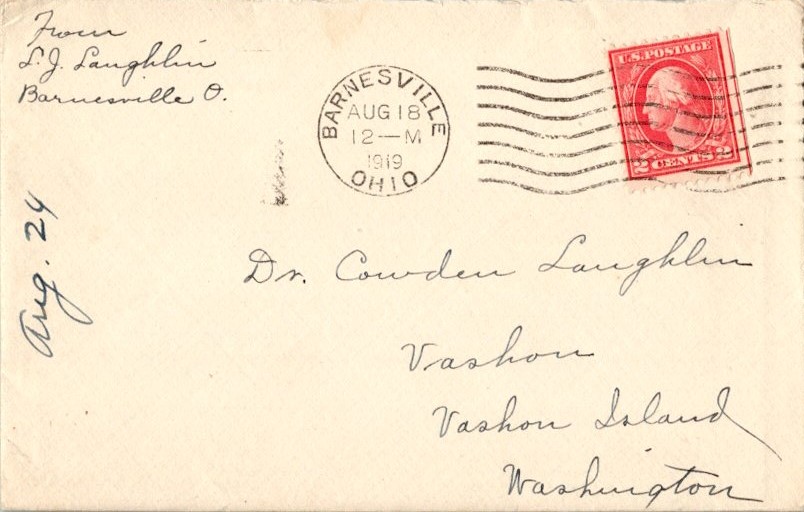 From
S. J. Laughlin
Barnesville O.
BARNESVILLE
AUG 18
12—M
1919
OHIO
U.S. POSTAGE
2 CENTS 2
Aug. 24
Dr. Cowden Laughlin
Vashon
Vashon Island
Washington